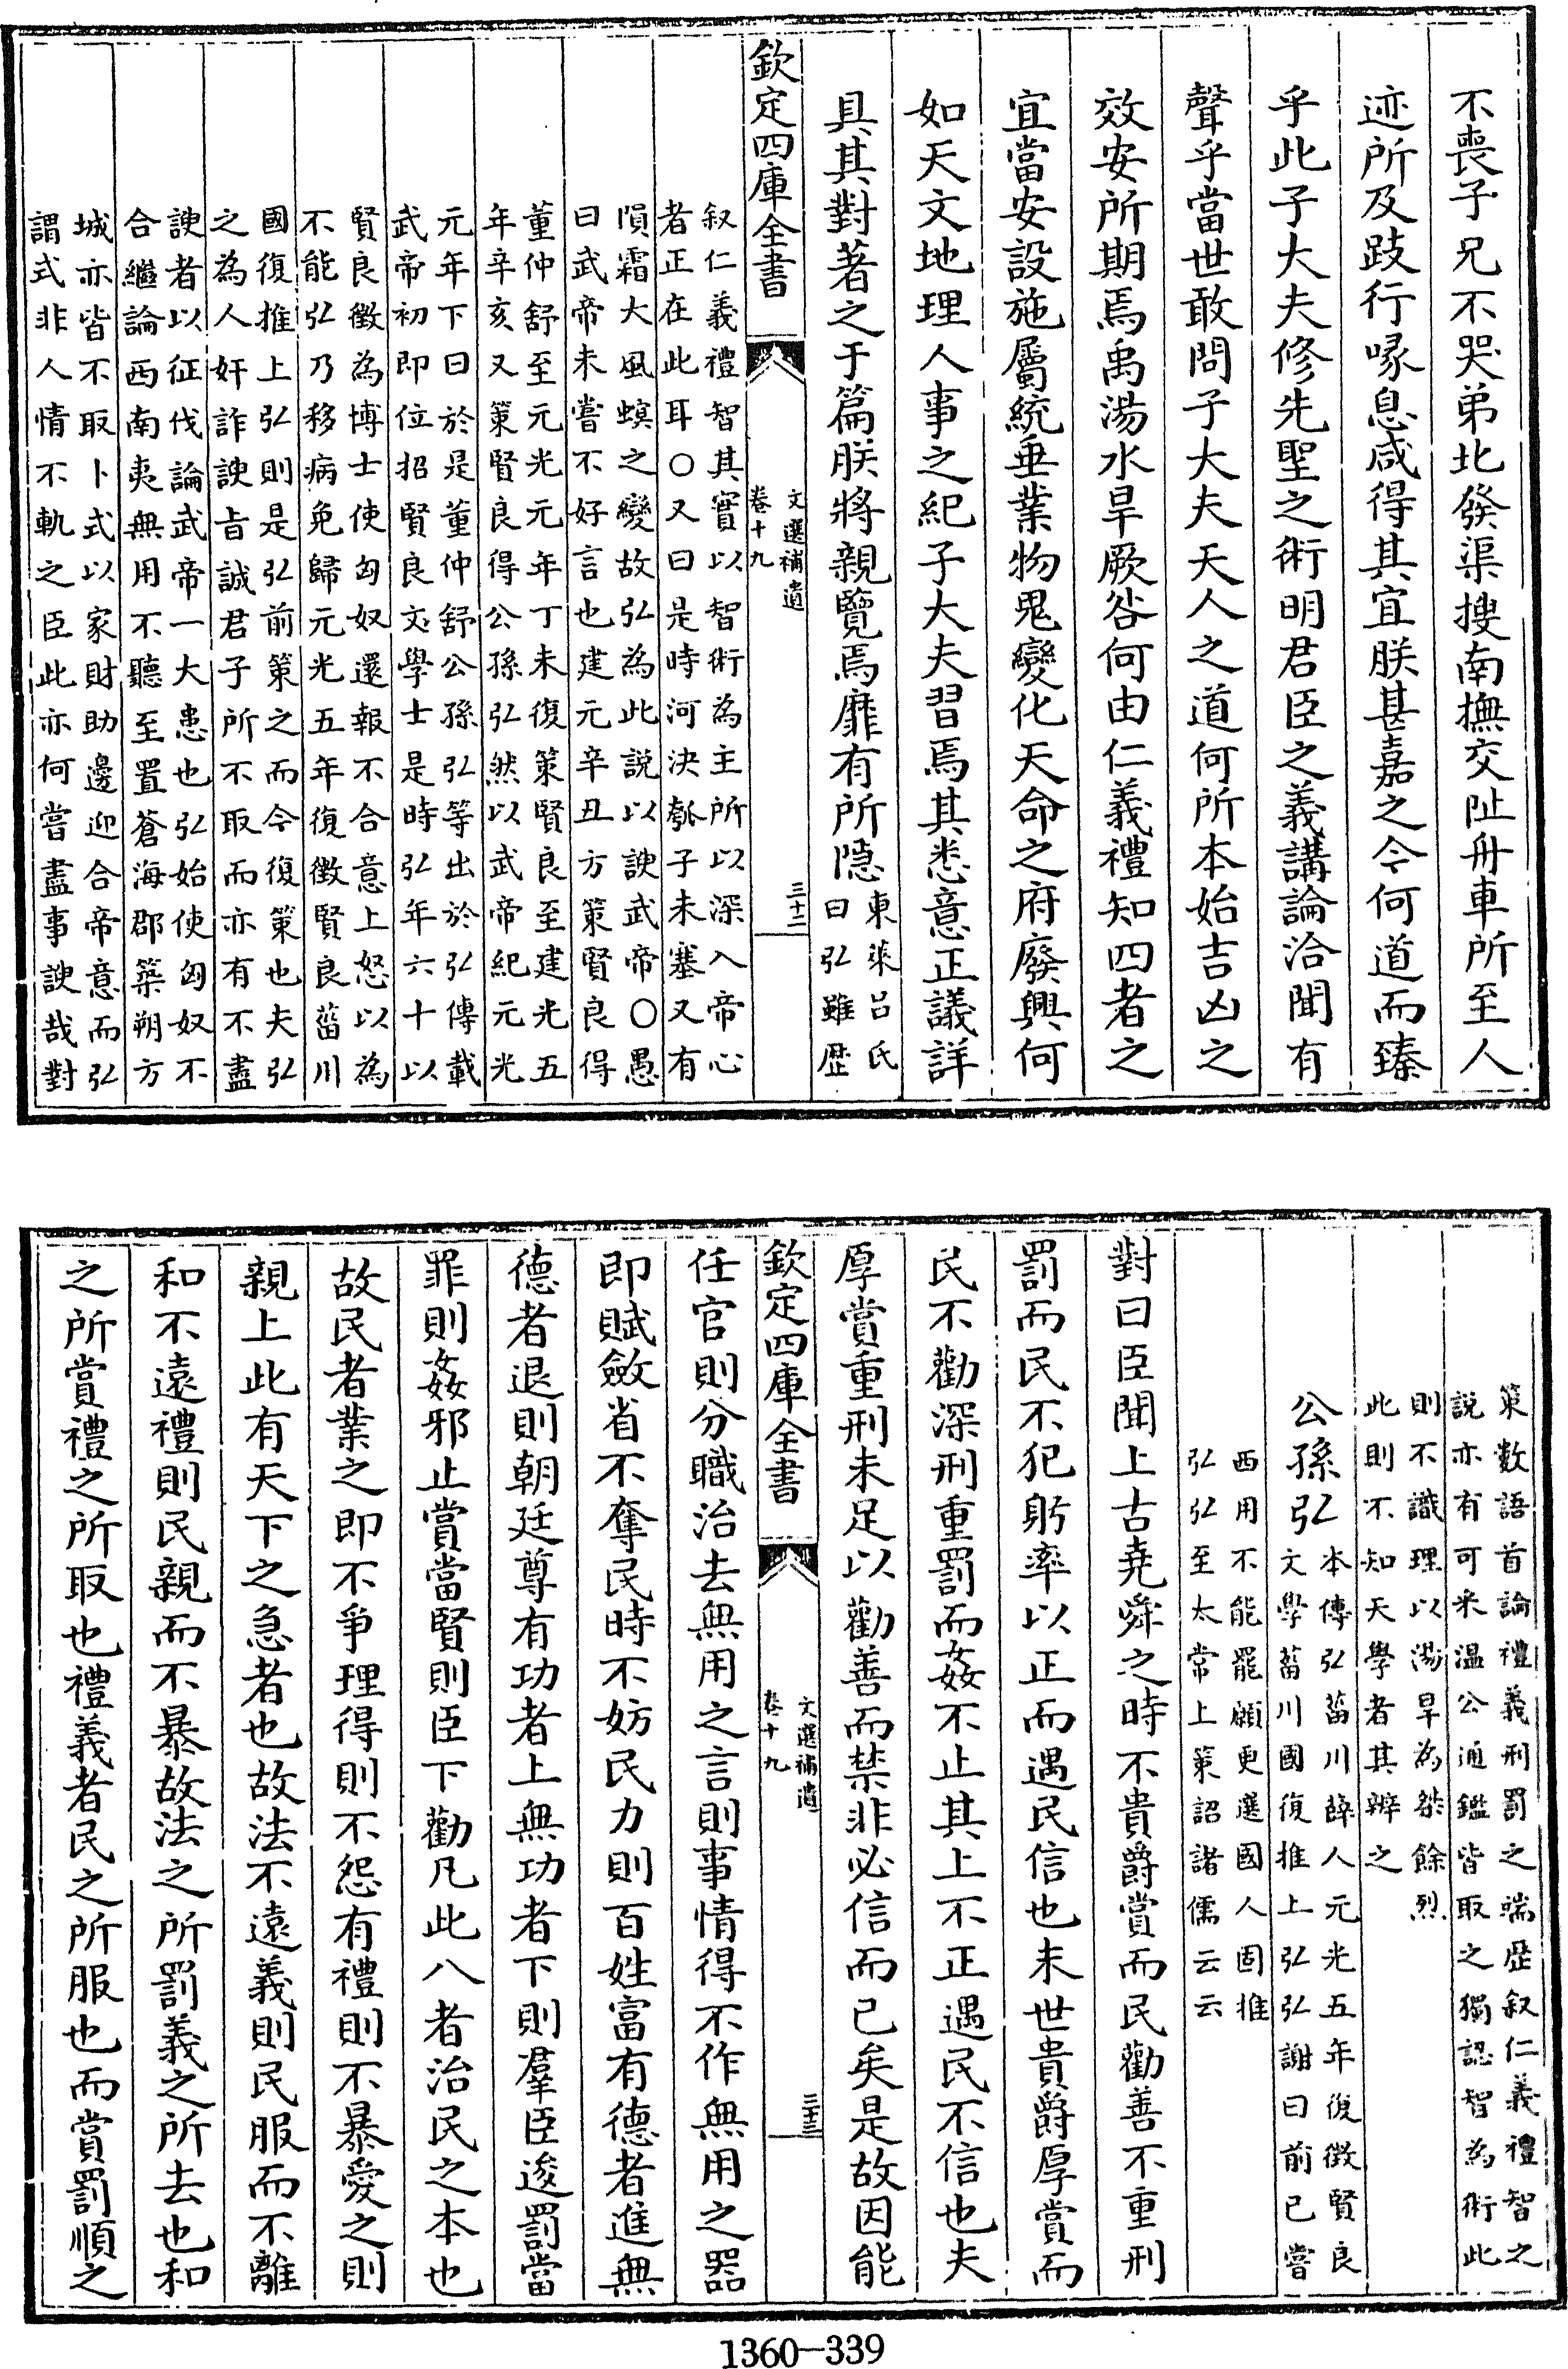 不喪子兄不哭弟北發渠搜南撫交阯舟車所至人
迹所及跂行喙息咸得其宜朕甚嘉之今何道而臻
乎此子大夫修先聖之術明君臣之義講論洽聞有
聲乎當世敢問子大夫天人之道何所本始吉凶之
效安所期焉禹湯水旱厥咎何由仁義禮知四者之
宜當安設施屬統垂業物鬼變化天命之府廢興何
如天文地理人事之紀子大夫習焉其悉意正議詳
具其對著之于篇朕將親覽焉靡有所隱
東萊吕氏
曰弘雖歴
欽定四庫全書
文選補遺
卷十九
三十二
叙仁義禮智其實以智術為主所以深入帝心
者正在此耳〇又曰是時河決瓠子未塞又有
隕霜大風螟之變故弘為此說以諛武帝〇愚
曰武帝未嘗不好言也建元辛丑方策賢良得
董仲舒至元光元年丁未復策賢良至建光五
年辛亥又策賢良得公孫弘然以武帝紀元光
元年下曰於是董仲舒公孫弘等出於弘傳載
武帝初即位招賢良文學士是時弘年六十以
賢良徵為博士使匈奴還報不合意上怒以為
不能弘乃移病免歸元光五年復徵賢良菑川
國復推上弘則是弘前策之而今復策也夫弘
之為人奸詐諛旨誠君子所不取而亦有不盡
諛者以征伐論武帝一大患也弘始使匈奴不
合繼論西南夷無用不聽至置蒼海郡築朔方
城亦皆不取卜式以家財助邊迎合帝意而弘
謂式非人情不軌之臣此亦何嘗盡事諛哉對
策數語首論禮義刑罰之端歴叙仁義禮智之
說亦有可采温公通鑑皆取之獨認智為術此
則不識理以湯旱為桀餘烈
此則不知天學者其辨之
公孫弘
本傳弘菑川薛人元光五年復徵賢良
文學菑川國復推上弘弘謝曰前已嘗
西用不能罷願更選國人固推
弘弘至太常上策詔諸儒云云
對曰臣聞上古堯舜之時不貴爵賞而民勸善不重刑
罰而民不犯躬率以正而遇民信也末世貴爵厚賞而
民不勸深刑重罰而姦不止其上不正遇民不信也夫
厚賞重刑未足以勸善而禁非必信而已矣是故因能
欽定四庫全書
文選補遺
卷十九
三十三
任官則分職治去無用之言則事情得不作無用之器
即賦斂省不奪民時不妨民力則百姓富有德者進無
德者退則朝廷尊有功者上無功者下則羣臣逡罰當
罪則姦邪止賞當賢則臣下勸凡此八者治民之本也
故民者業之即不爭理得則不怨有禮則不暴愛之則
親上此有天下之急者也故法不遠義則民服而不離
和不遠禮則民親而不暴故法之所罰義之所去也和
之所賞禮之所取也禮義者民之所服也而賞罰順之
1360-339